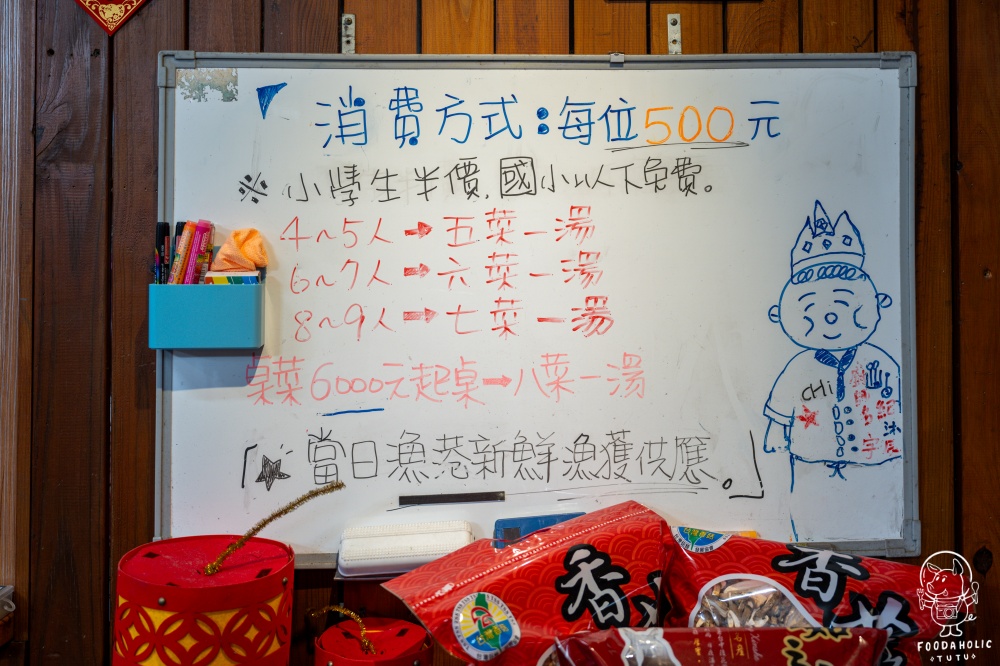 消費方式：每位500元
※小學生半價.國小以下免費。
4~5人➡五菜一湯
6~7人➡六菜一湯
8~9人➡七菜一湯
桌菜6000元起桌➡八菜一湯
「☆當日漁港新鮮漁獲供應。」
CHi
香
香菇
FOODAHOLIC
TUTU